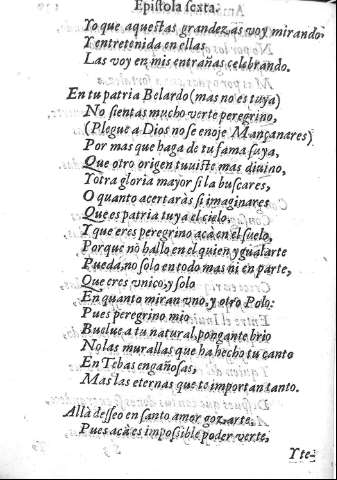 Epistola sexta.
Yo que aquestas grandezas voy mirando:
Y entretenida en ellas
Las voy en mis entrañas celebrando.
En tu patria Belardo (mas no es tuya)
No sientas mucho verte peregrino,
(Plegue a Dios no se enoje Mançanares)
Por mas que haga de tu fama suya,
Que otro origen tuuiste mas diuino,
Y otra gloria mayor si la buscares,
O quanto acertaràs si imaginares
Que es patria tuya el cielo,
Y que eres peregrino acà en el suelo,
Porque no hallo en el quien ygualarte
Pueda, no solo en todo mas ni en parte,
Que eres vnico, y solo
En quanto miran vno, y otro Polo:
Pues peregrino mio
Buelue a tu natural, pongante brio
No las murallas que ha hecho tu canto
En Tebas engañosas,
Mas las eternas que te importan tanto.
Allà desseo en santo amor gozarte,
Pues acà es impossible poder verte,
Y te-